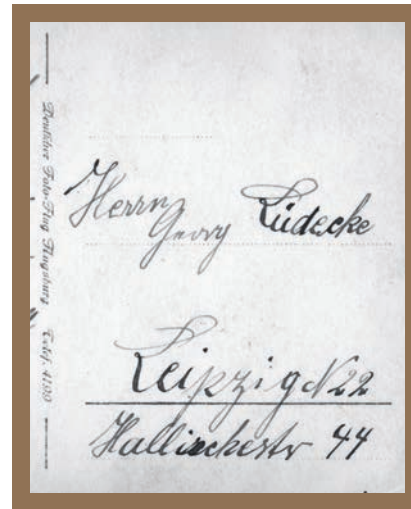 Deutscher Foto-Flug Augsburg Telef. 4199
Herrn
Georg Lüdecke
Leipzig N22
Hallischestr 44